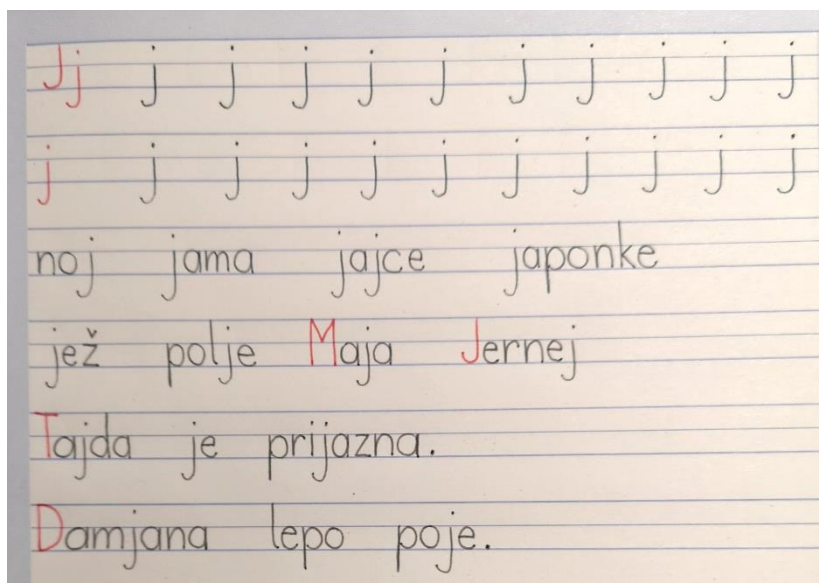 Jj j j j j j j j j j j
j j j j j j j j j j j
noj jama jajce japonke
jež polje Maja Jernej
Tajda je prijazna.
Damjana lepo poje.